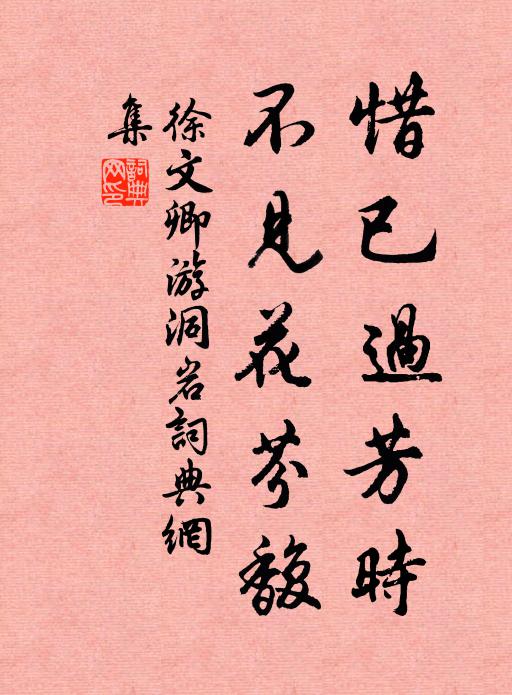 惜已過芳時
不見花芬馥
徐文卿游洞岩詞典網
集
詞典網印